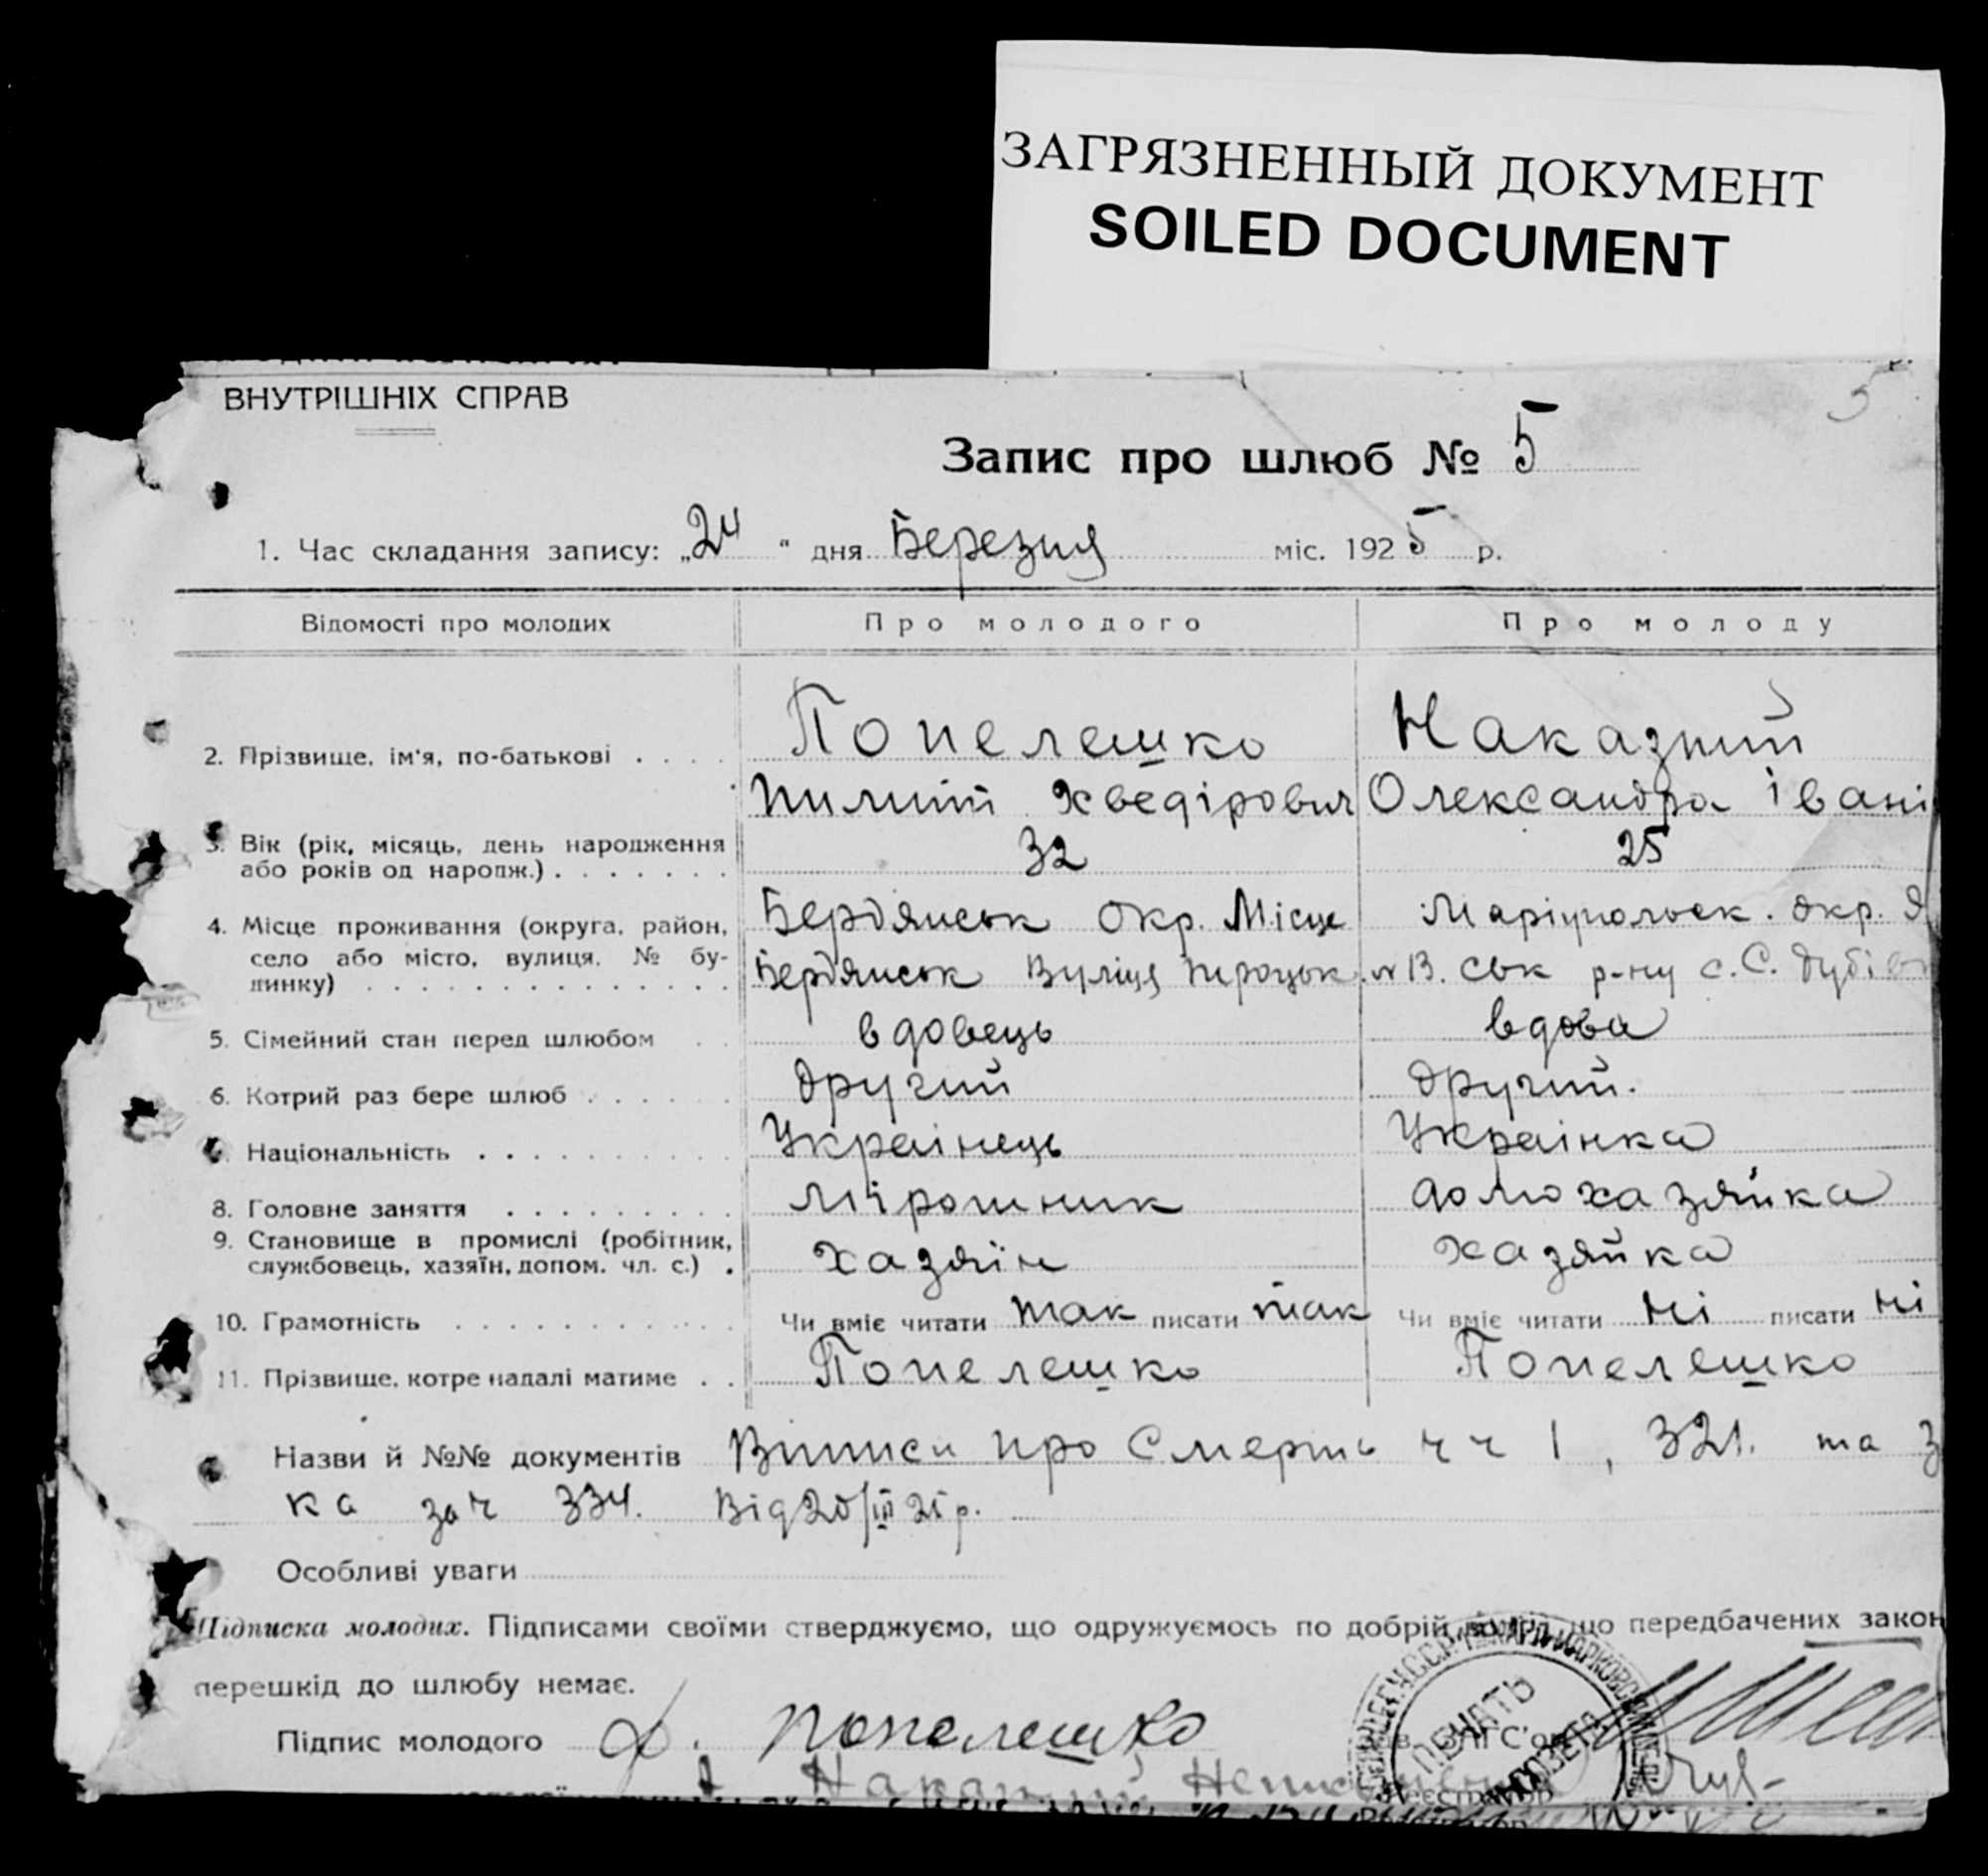 ЗАГРЯЗНЕННЫЙ ДОКУМЕНТ
SOILED DOCUMENT
5
ВНУТРІШНІХ СПРАВ
Запис про шлюб № 5
1. Час складання запису: „24" дня Березня міс. 1925 р.
Відомості про молодих Про молодого Про молоду
2. Прізвище, ім'я, по-батькові . . . . Попелешко Наказний
Пилип Хведірович Олександра Івані
3. Вік (рік, місяць, день народження
або років од нарőдж.) . . . . . . . 32 25
4. Місце проживання (округа, район, Бердянськ окр. Місце Маріупольск. окр. Я
село або місто, вулиця, № бу- Бердянськ Вуліця Троцьк. № 13. ськ р-ну с.С.
динку) . . . . . . . . . . . . . . .
5. Сімейний стан перед шлюбом . . вдовець вдова
6. Котрий раз бере шлюб . . . . . . другий другий.
Національність . . . . . . . . . . . Украінець Украінка
8. Головне заняття . . . . . . . . . Мірошник домохазяйка
9. Становище в промислі (робітник,
службовець, хазяїн, допом. чл. с.) . хазяїн хазяйка
10. Грамотність . . . . . . . . . . . . Чи вміє читати так писати так Чи вміє читати ні писати ні
11. Прізвище, котре надалі матиме . . Попелешко Попелешко
Назви й №№ документів Виписи про Смерть чч 1, 321. та з
ка за ч 334. Від 20/III 25 р.
Особливі уваги
Підписка молодих. Підписами своїми стверджуємо, що одружуємось по добрій що передбачених закон
перешкід до шлюбу немає.
Підпис молодого Попелешко
ПЕЧАТЬ
Наказний